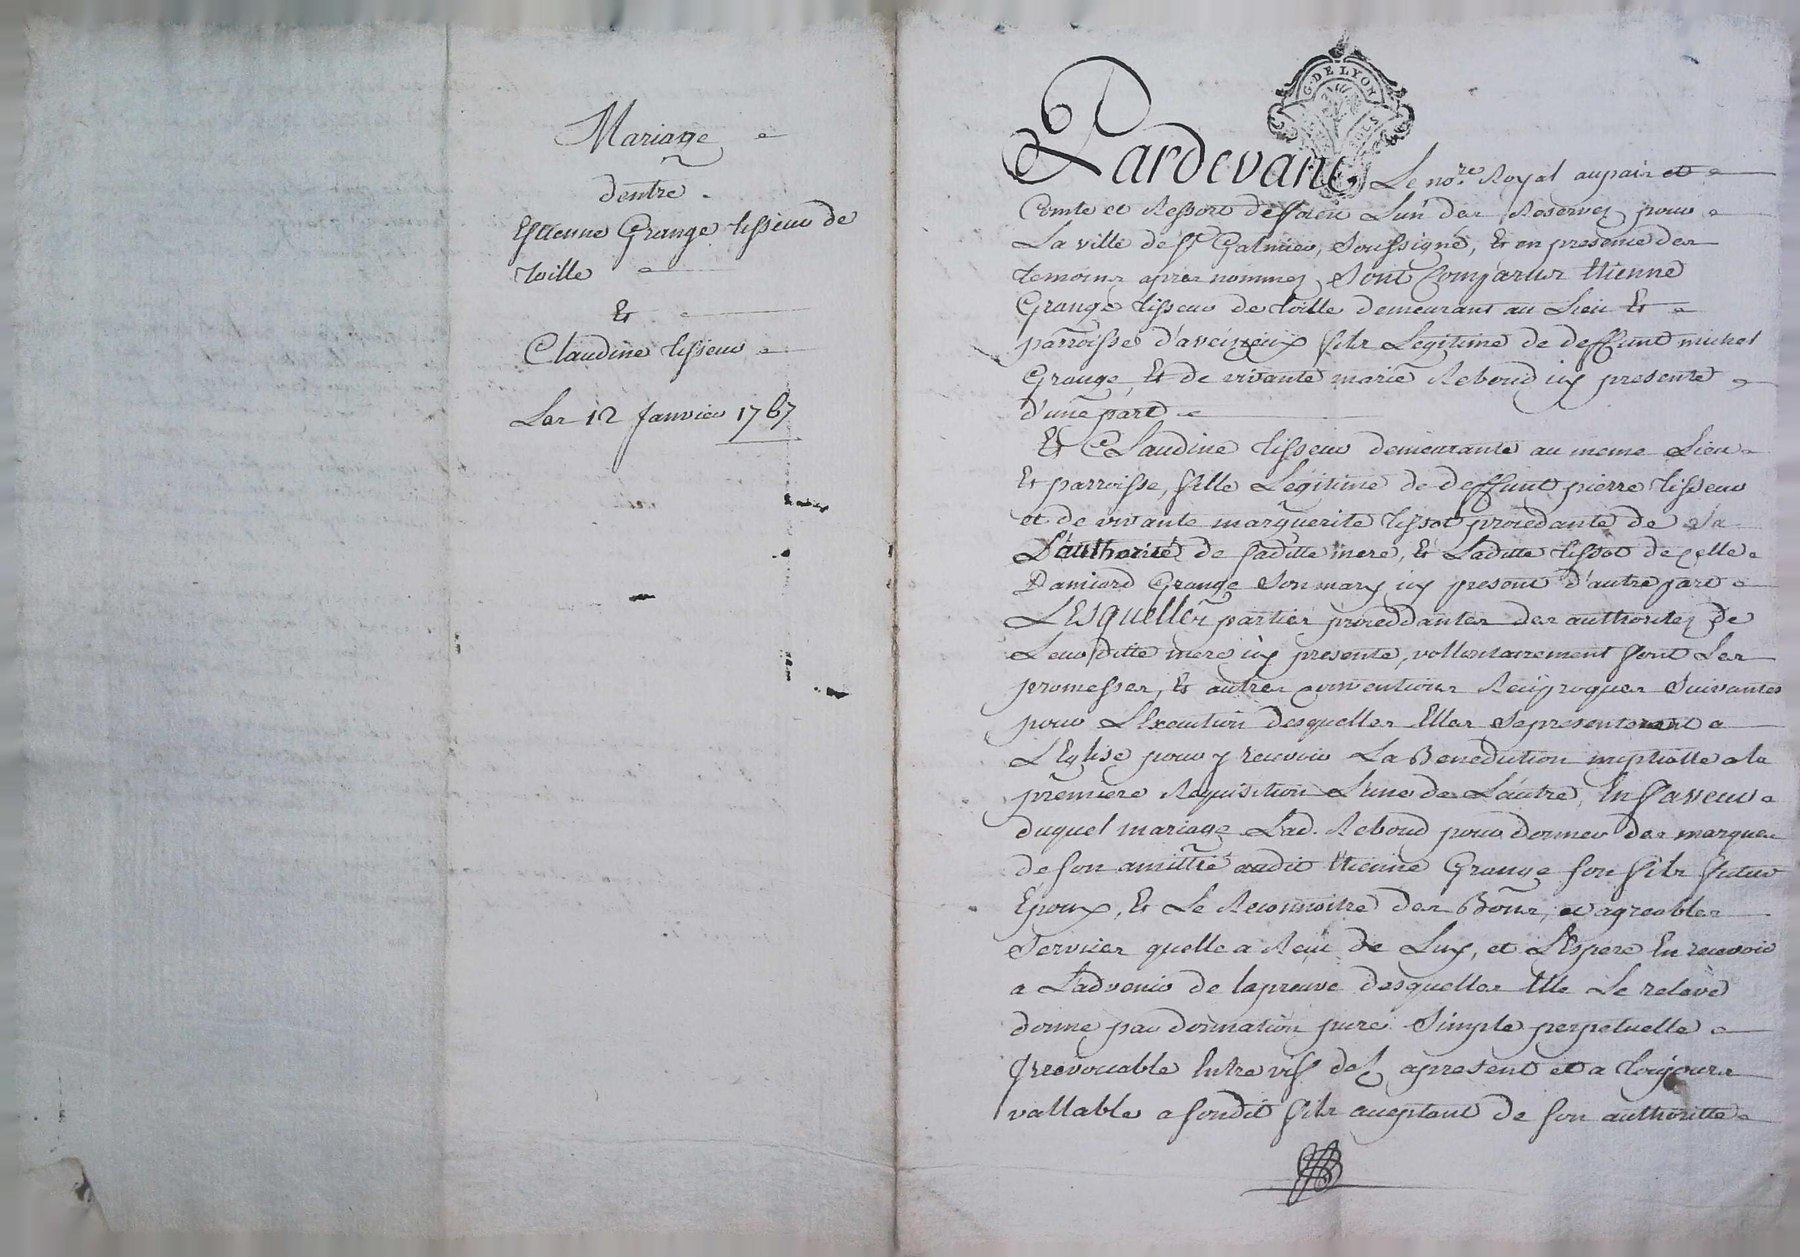 Mariage
dentre
Estienne Grange tisseur de
toille
Et
Claudine tisseur
Les 12 Janvier 1767
G. DE LYON
Pardevant Le no.re Royal au pair et
Comte et Ressort de forew Lun des Reservez pour
La ville de St Galmier, Soussigné, Et en presence des
temoins apres nommez Sont Comparus Etienne
Grange tisseur de toille demeurant au Lieu Et
parroisse d'aveizieux fils Legitime de deffunt michel
Grange Et de vivante marie Reboud icy presente
d'une part
Et Claudine tisseur demeurante au meme Lieu
Et parroisse, fille Legitime de deffunt pierre tisseur
et de vivante marguerite tissot procedante de la
L'authorité de saditte mere, Et Laditte tissot de celle
Damiard Grange Son mary icy present d'autre part
LEsquelles parties proceddantes des authoritez de
Leurs ditte mere icy presente, vollontairement font Les
promesses, Et autres conventions Reciproques Suivantes
pour LExecution desquelles Elles Se presenteront a
LEglise pour y recevoir La Benediction nuptialle a la
premiere Requisition Lune de Lautre, En faveur
duquel mariage Lad. Reboud pour donner des marques
de son amittié audit Etienne Grange son fils futur
Epoux, Et Le Reconnoitre des Bons, et agreables
Services quelle a Receu de Luy, et LEspere En recevoir
a Ladvenir de la preuve desquelles Elle Le releve
donne par donnation pure Simple perpetuelle
Irrevocable Entre vifs dez apresent et a toujours
vallable a sondit fils acceptant de son authoritte